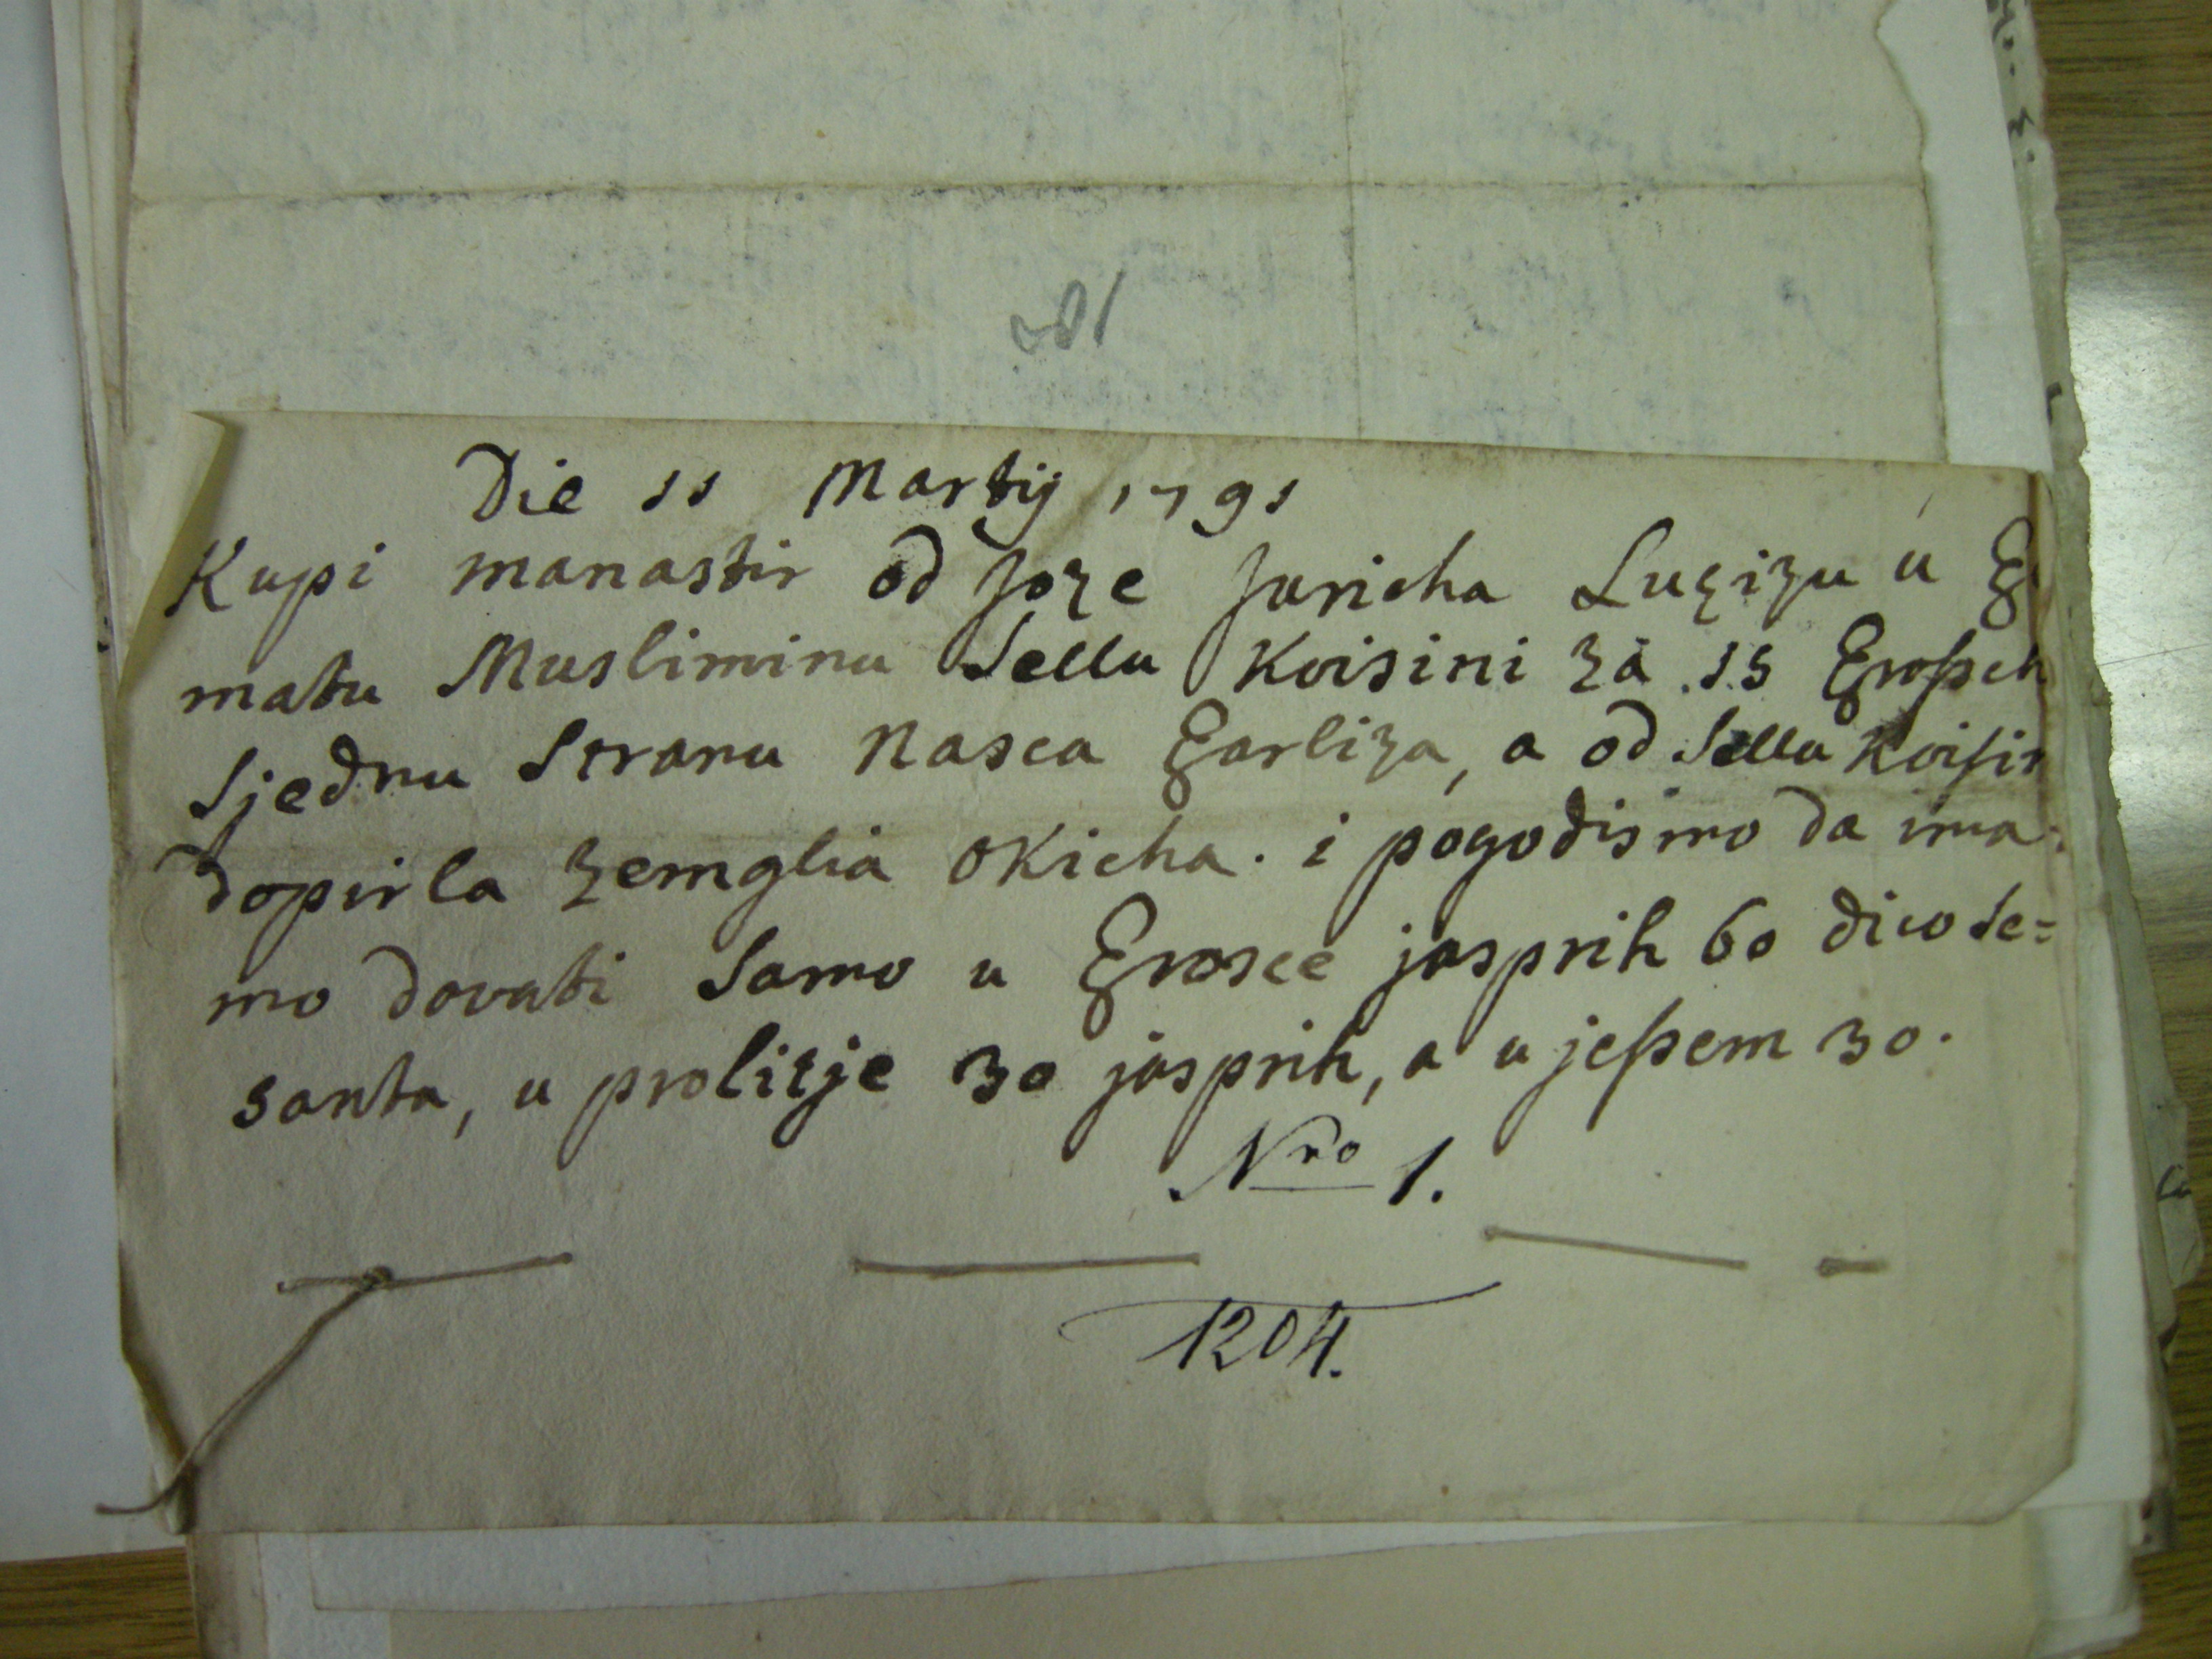 Die 11 Martij 1791
Kupi manastir od Joze Juricha Luzizu u
matu Musliminu Sellu Koisini za .15 Groſsch
Sjednu Stranu Nasca Garliza, a od Sella Koiſin
dopirla zemglia Okicha. i pogodismo da ima:
mo davati Samo u Grosce jasprih 60 dicose=
santa, u prolitje 30 jasprih, a u jeſsem 30.
Nro 1.
1204.